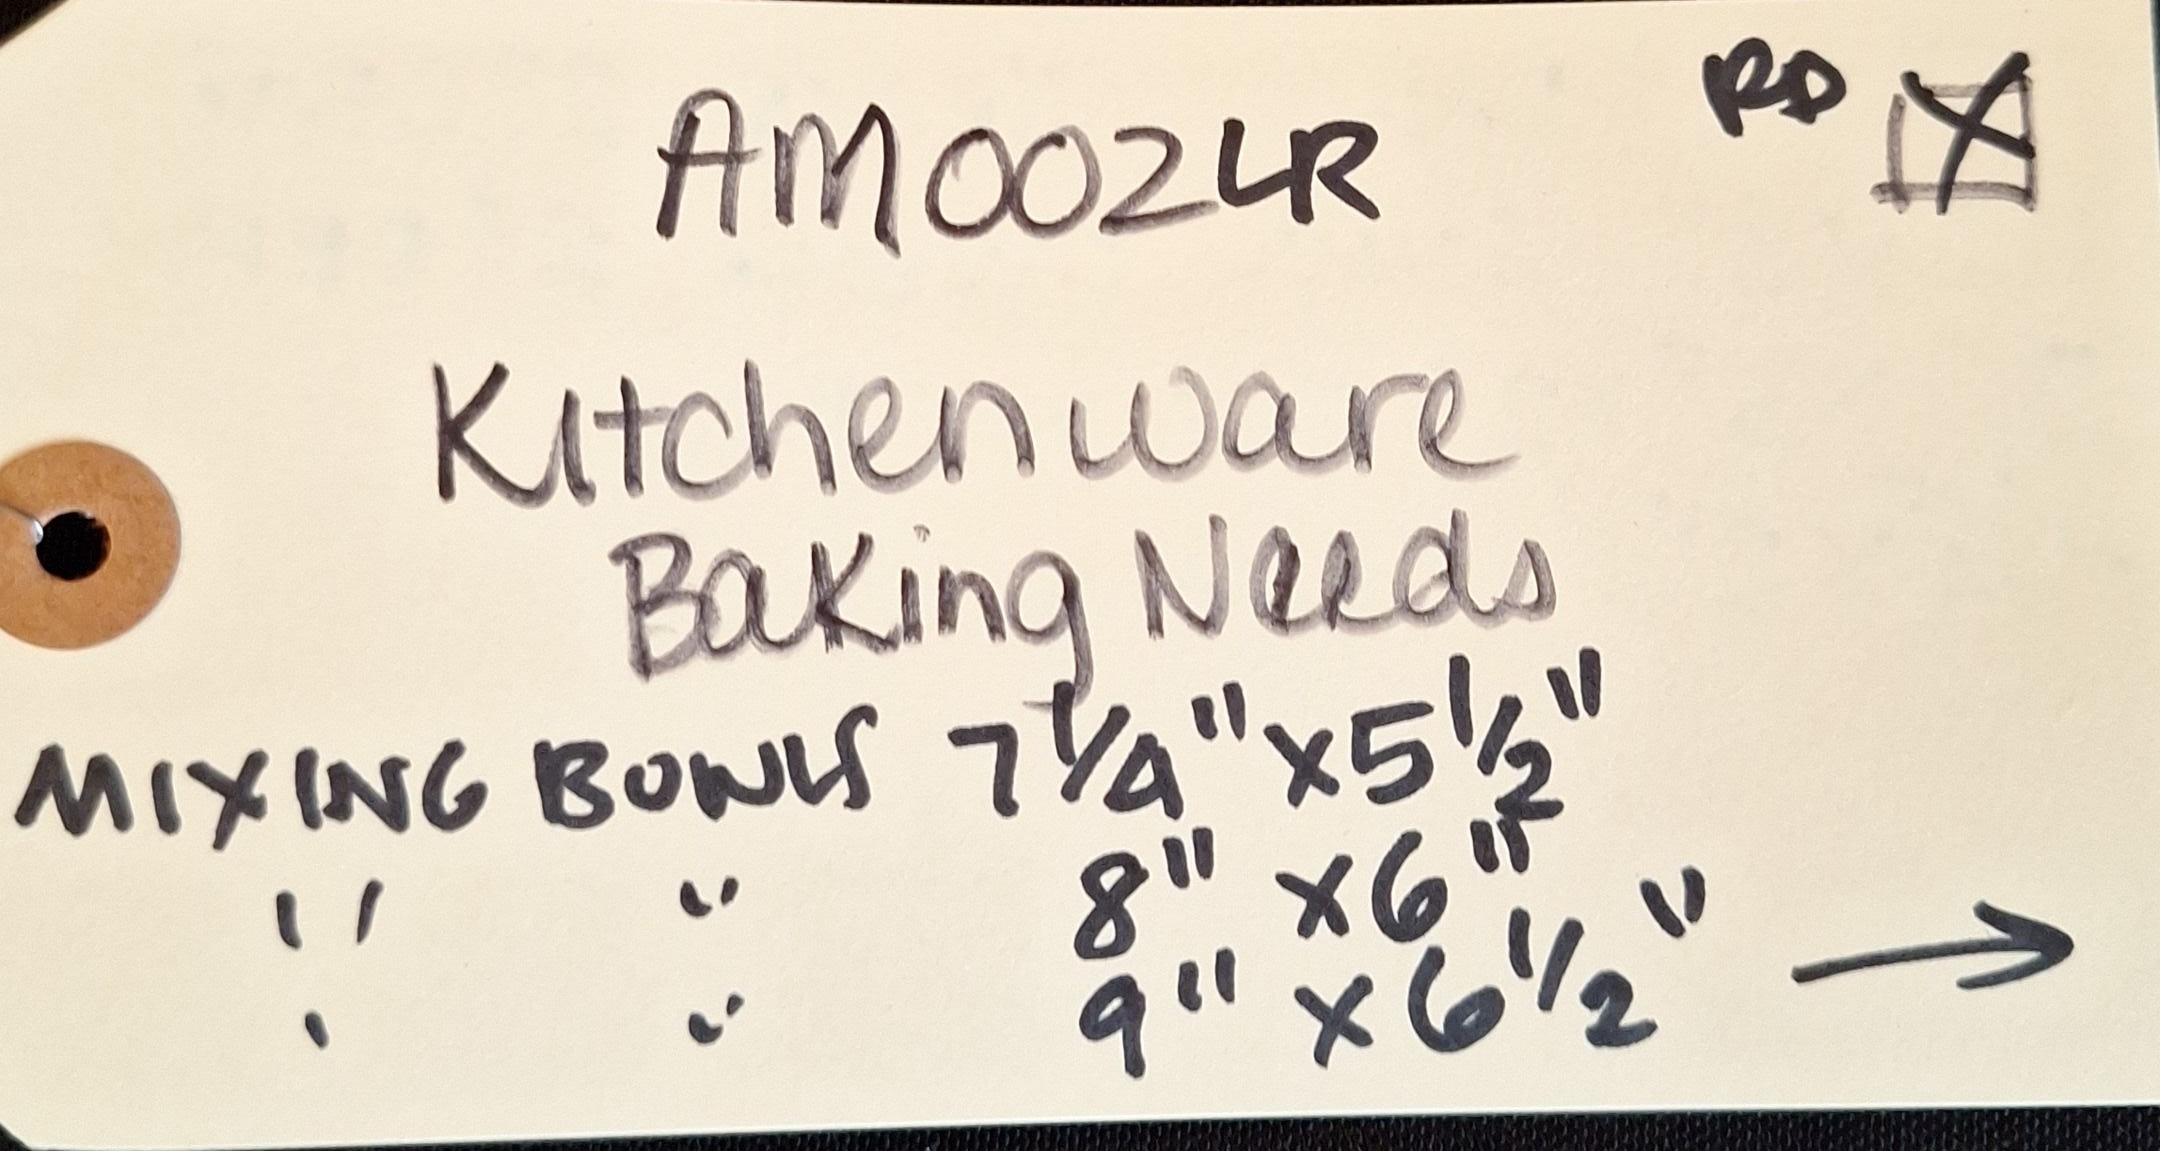 AM002LR
RD
Kitchenware
Baking Needs
MIXING BOWLS 7 1/4" x 5 1/2"
" " 8" x 6"
" " 9" x 6 1/2" →